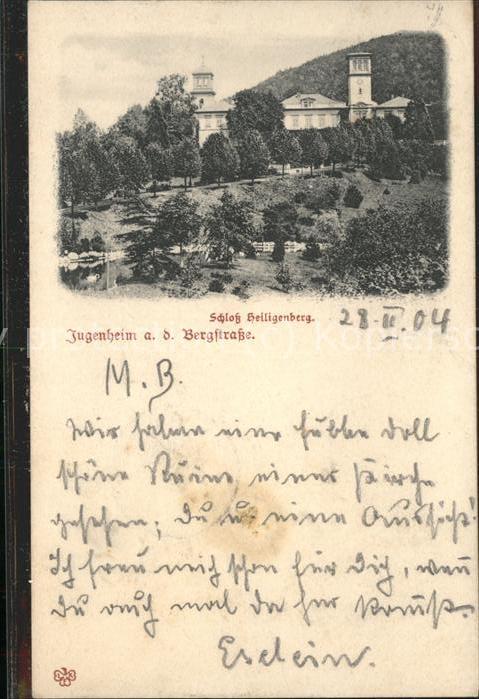 Schloß Heiligenberg.
28·II.04
Jugenheim a. d. Bergstraße.
M. B.
Wir haben eine hübsche doll
schöne Ruine einer Kirche
gesehen; du u. eine Aussicht!
Ich freu mich schon für Dich, wenn
du auch mal da her kommst.